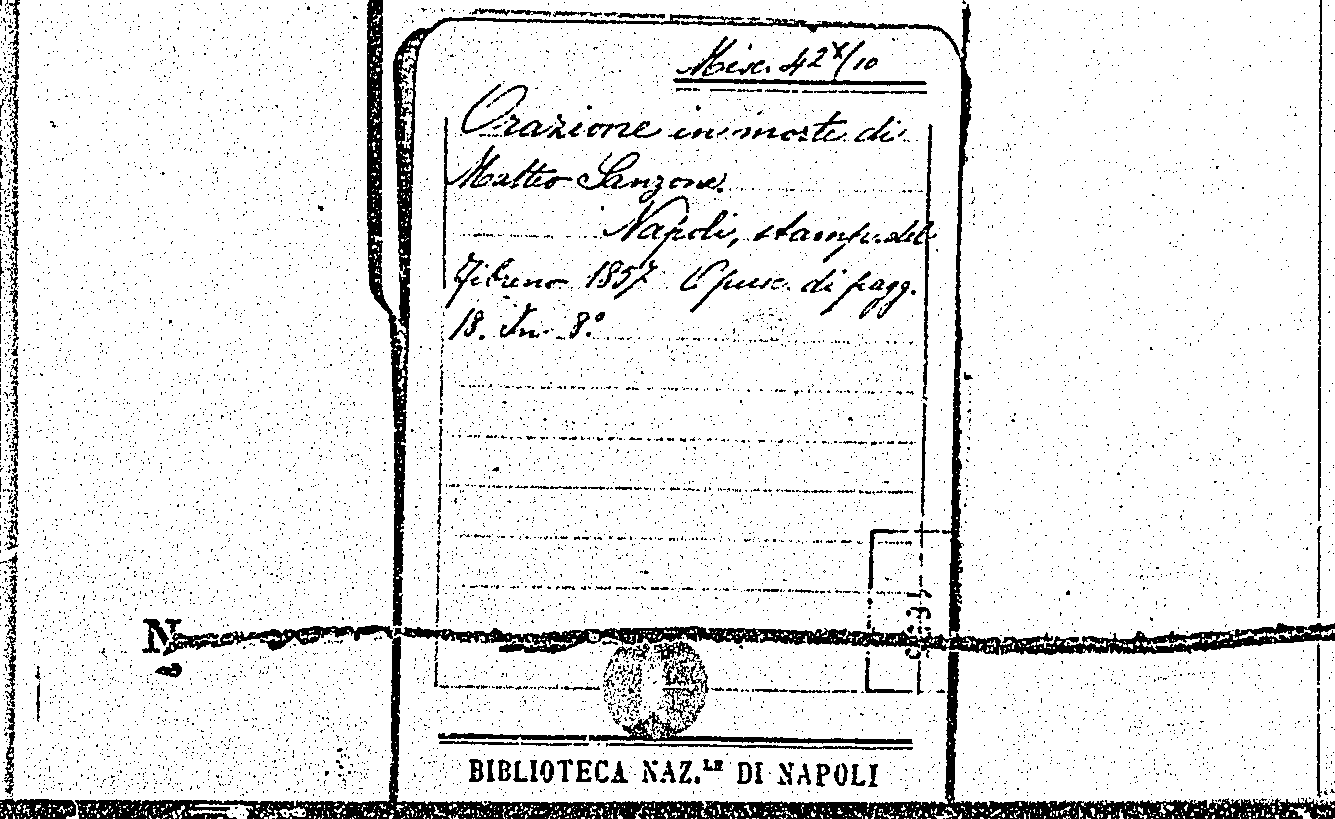 Misc. 42 X/10
Orazione in morte di
Matteo Sanzone.
Napoli, stamp. del
Fibreno 1857 Opusc. di pagg.
18. In 8.°
N
BIBLIOTECA NAZ.LE DI NAPOLI